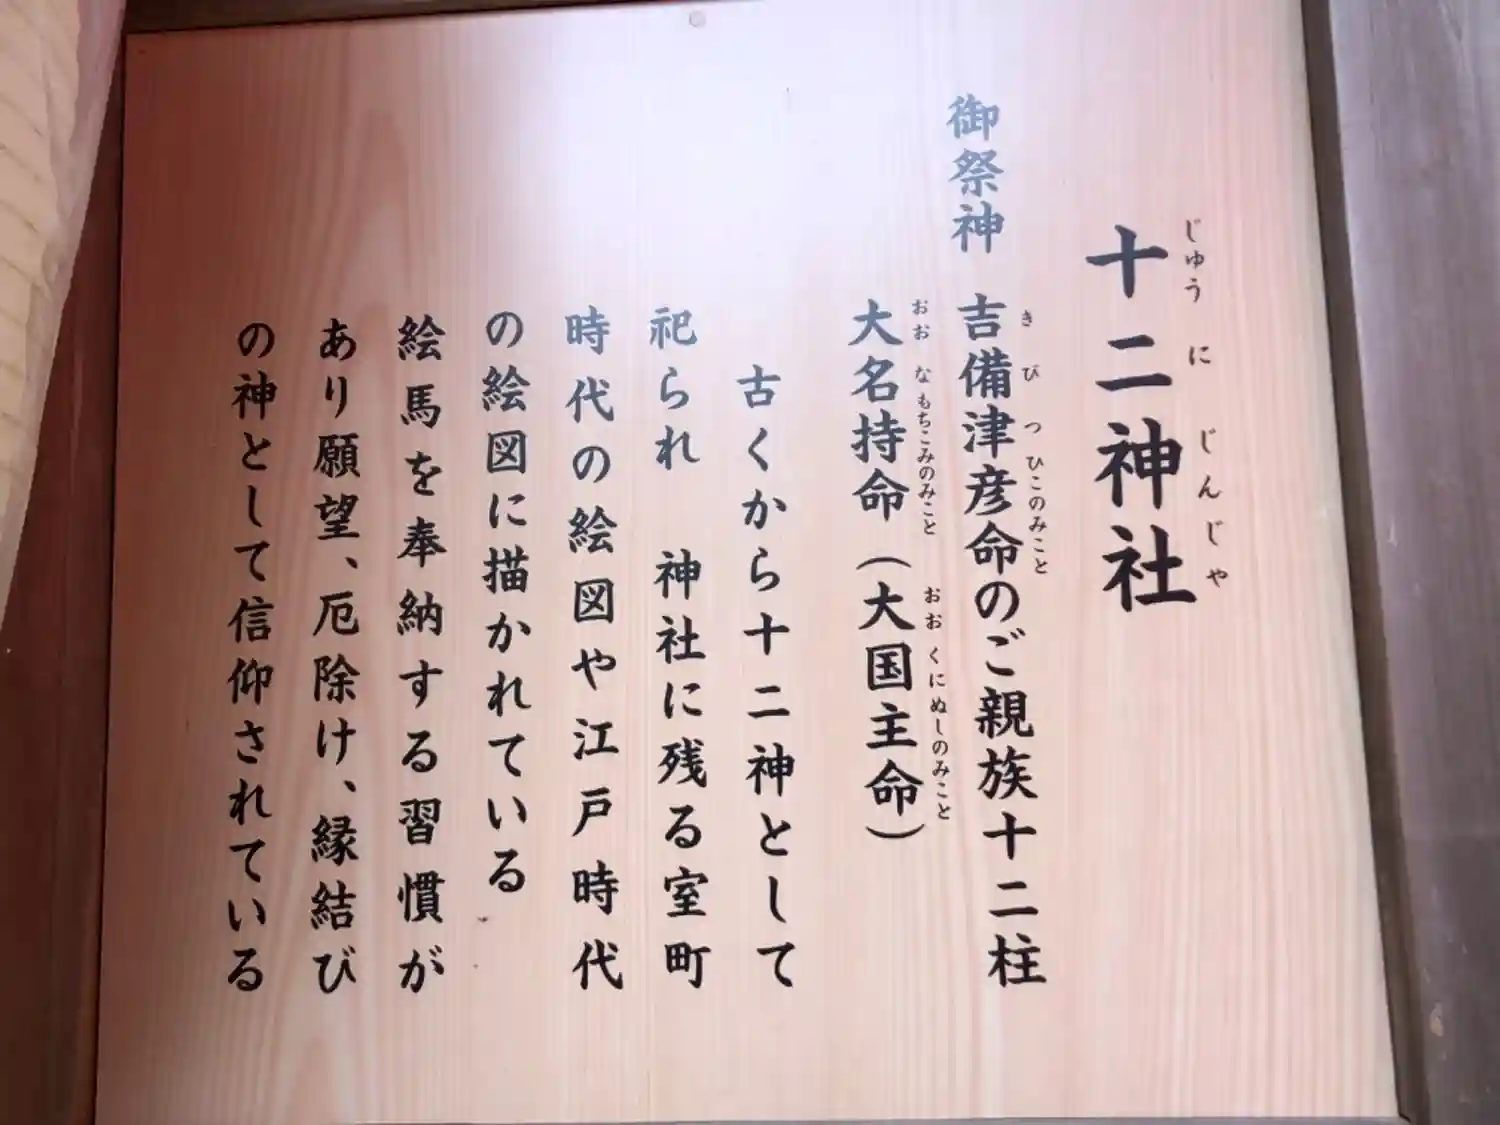 十二神社
じゅうにじんじゃ
御祭神 吉備津彦命のご親族十二柱
きびつひこのみこと
大名持命（大国主命）
おおなもちこみのみこと
おおくにぬしのみこと
古くから十二神として
祀られ 神社に残る室町
時代の絵図や江戸時代
の絵図に描かれている
絵馬を奉納する習慣が
あり願望、厄除け、縁結び
の神として信仰されている